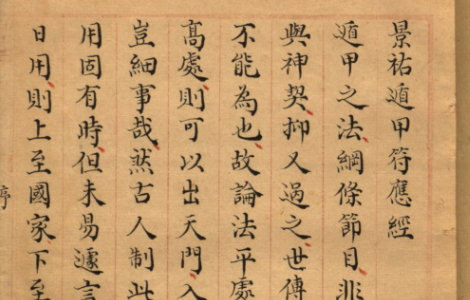 景祐遁甲符應經
遁甲之法綱條節目非
與神契抑又過之世傳
不能為也故論法平處
高處則可以出天門入
豈細事哉然古人制此
用固有時但未易遽言
日用則上至國家下至